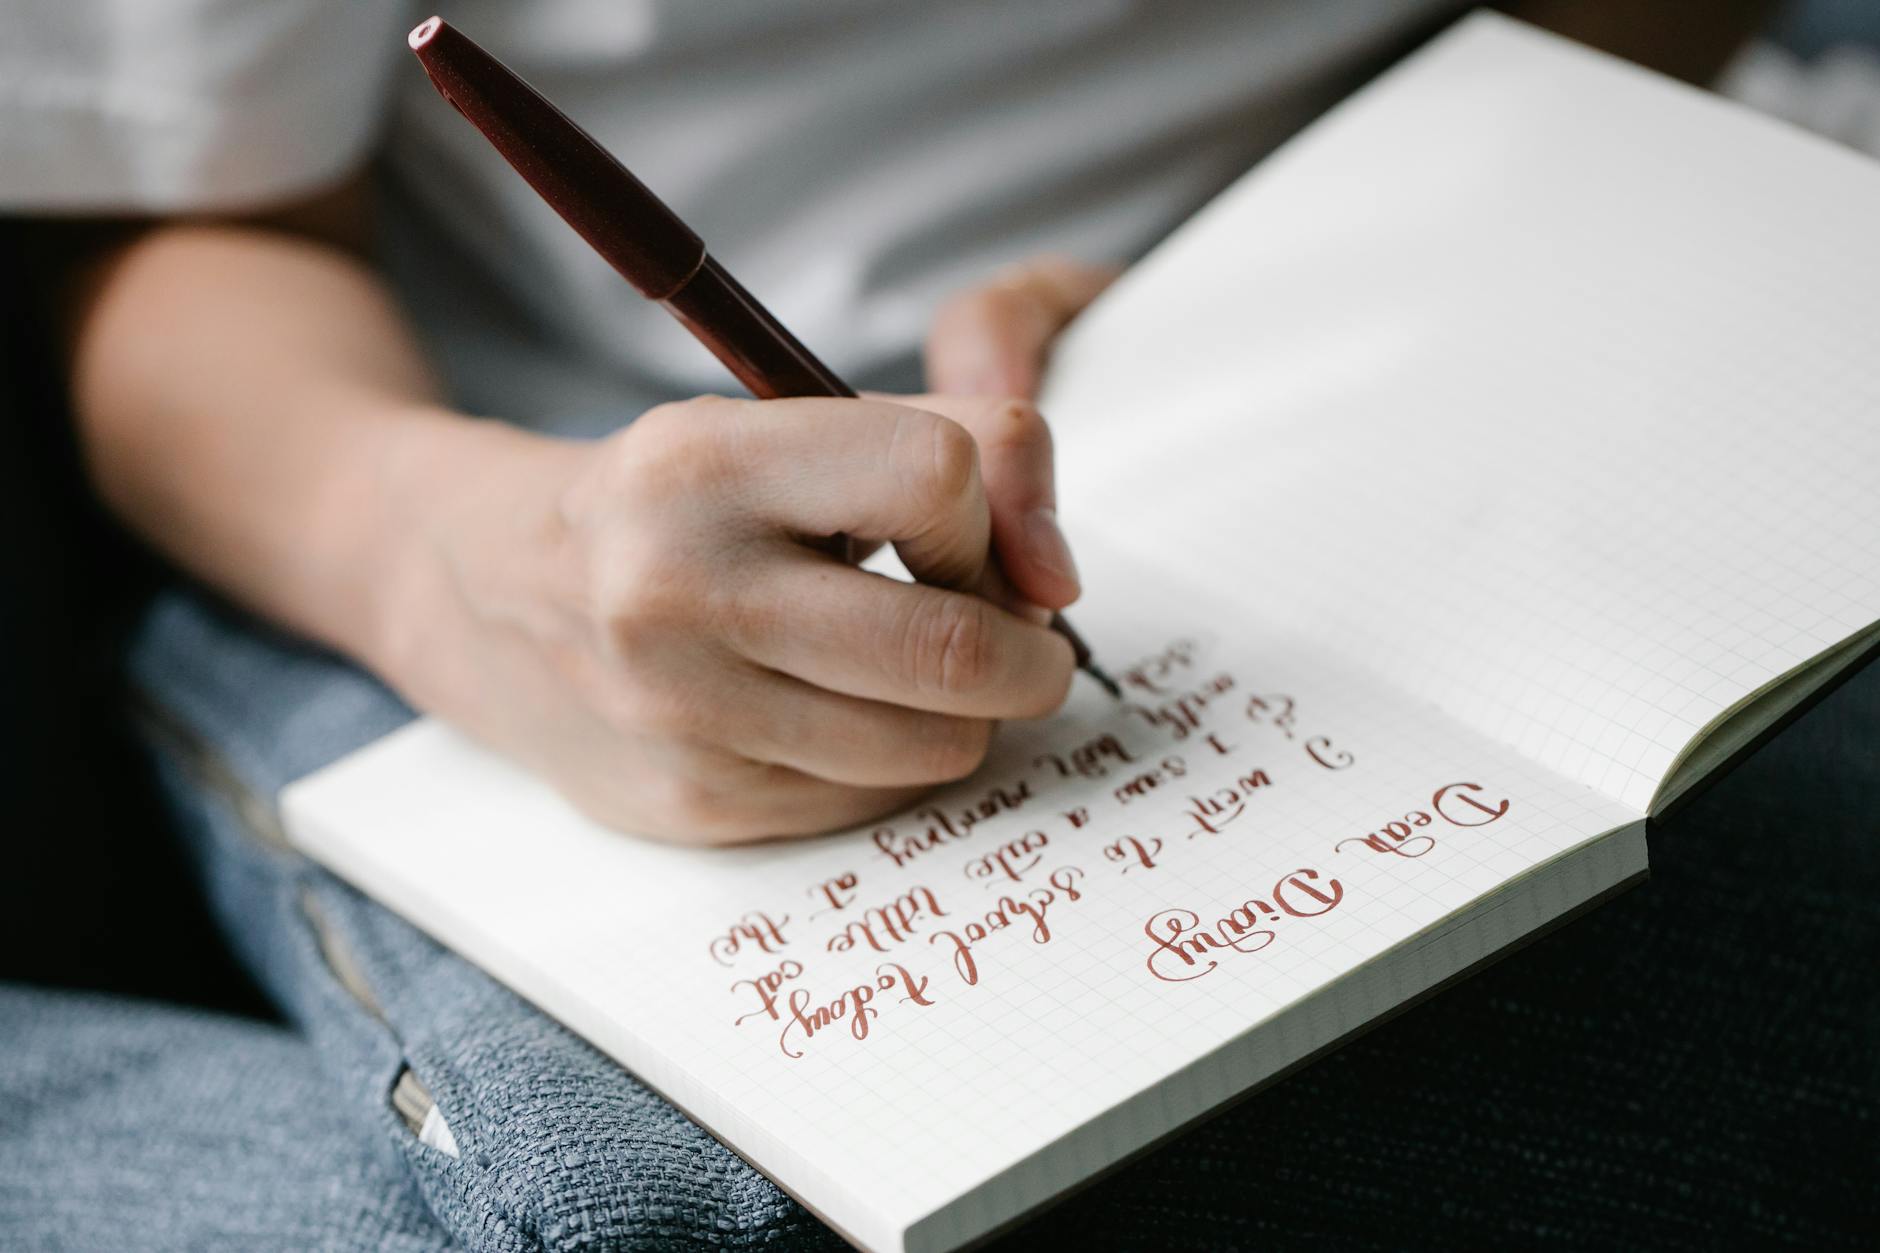 Dear Diary
I went to school today
I saw a cute little cat
with her mommy at the
sch